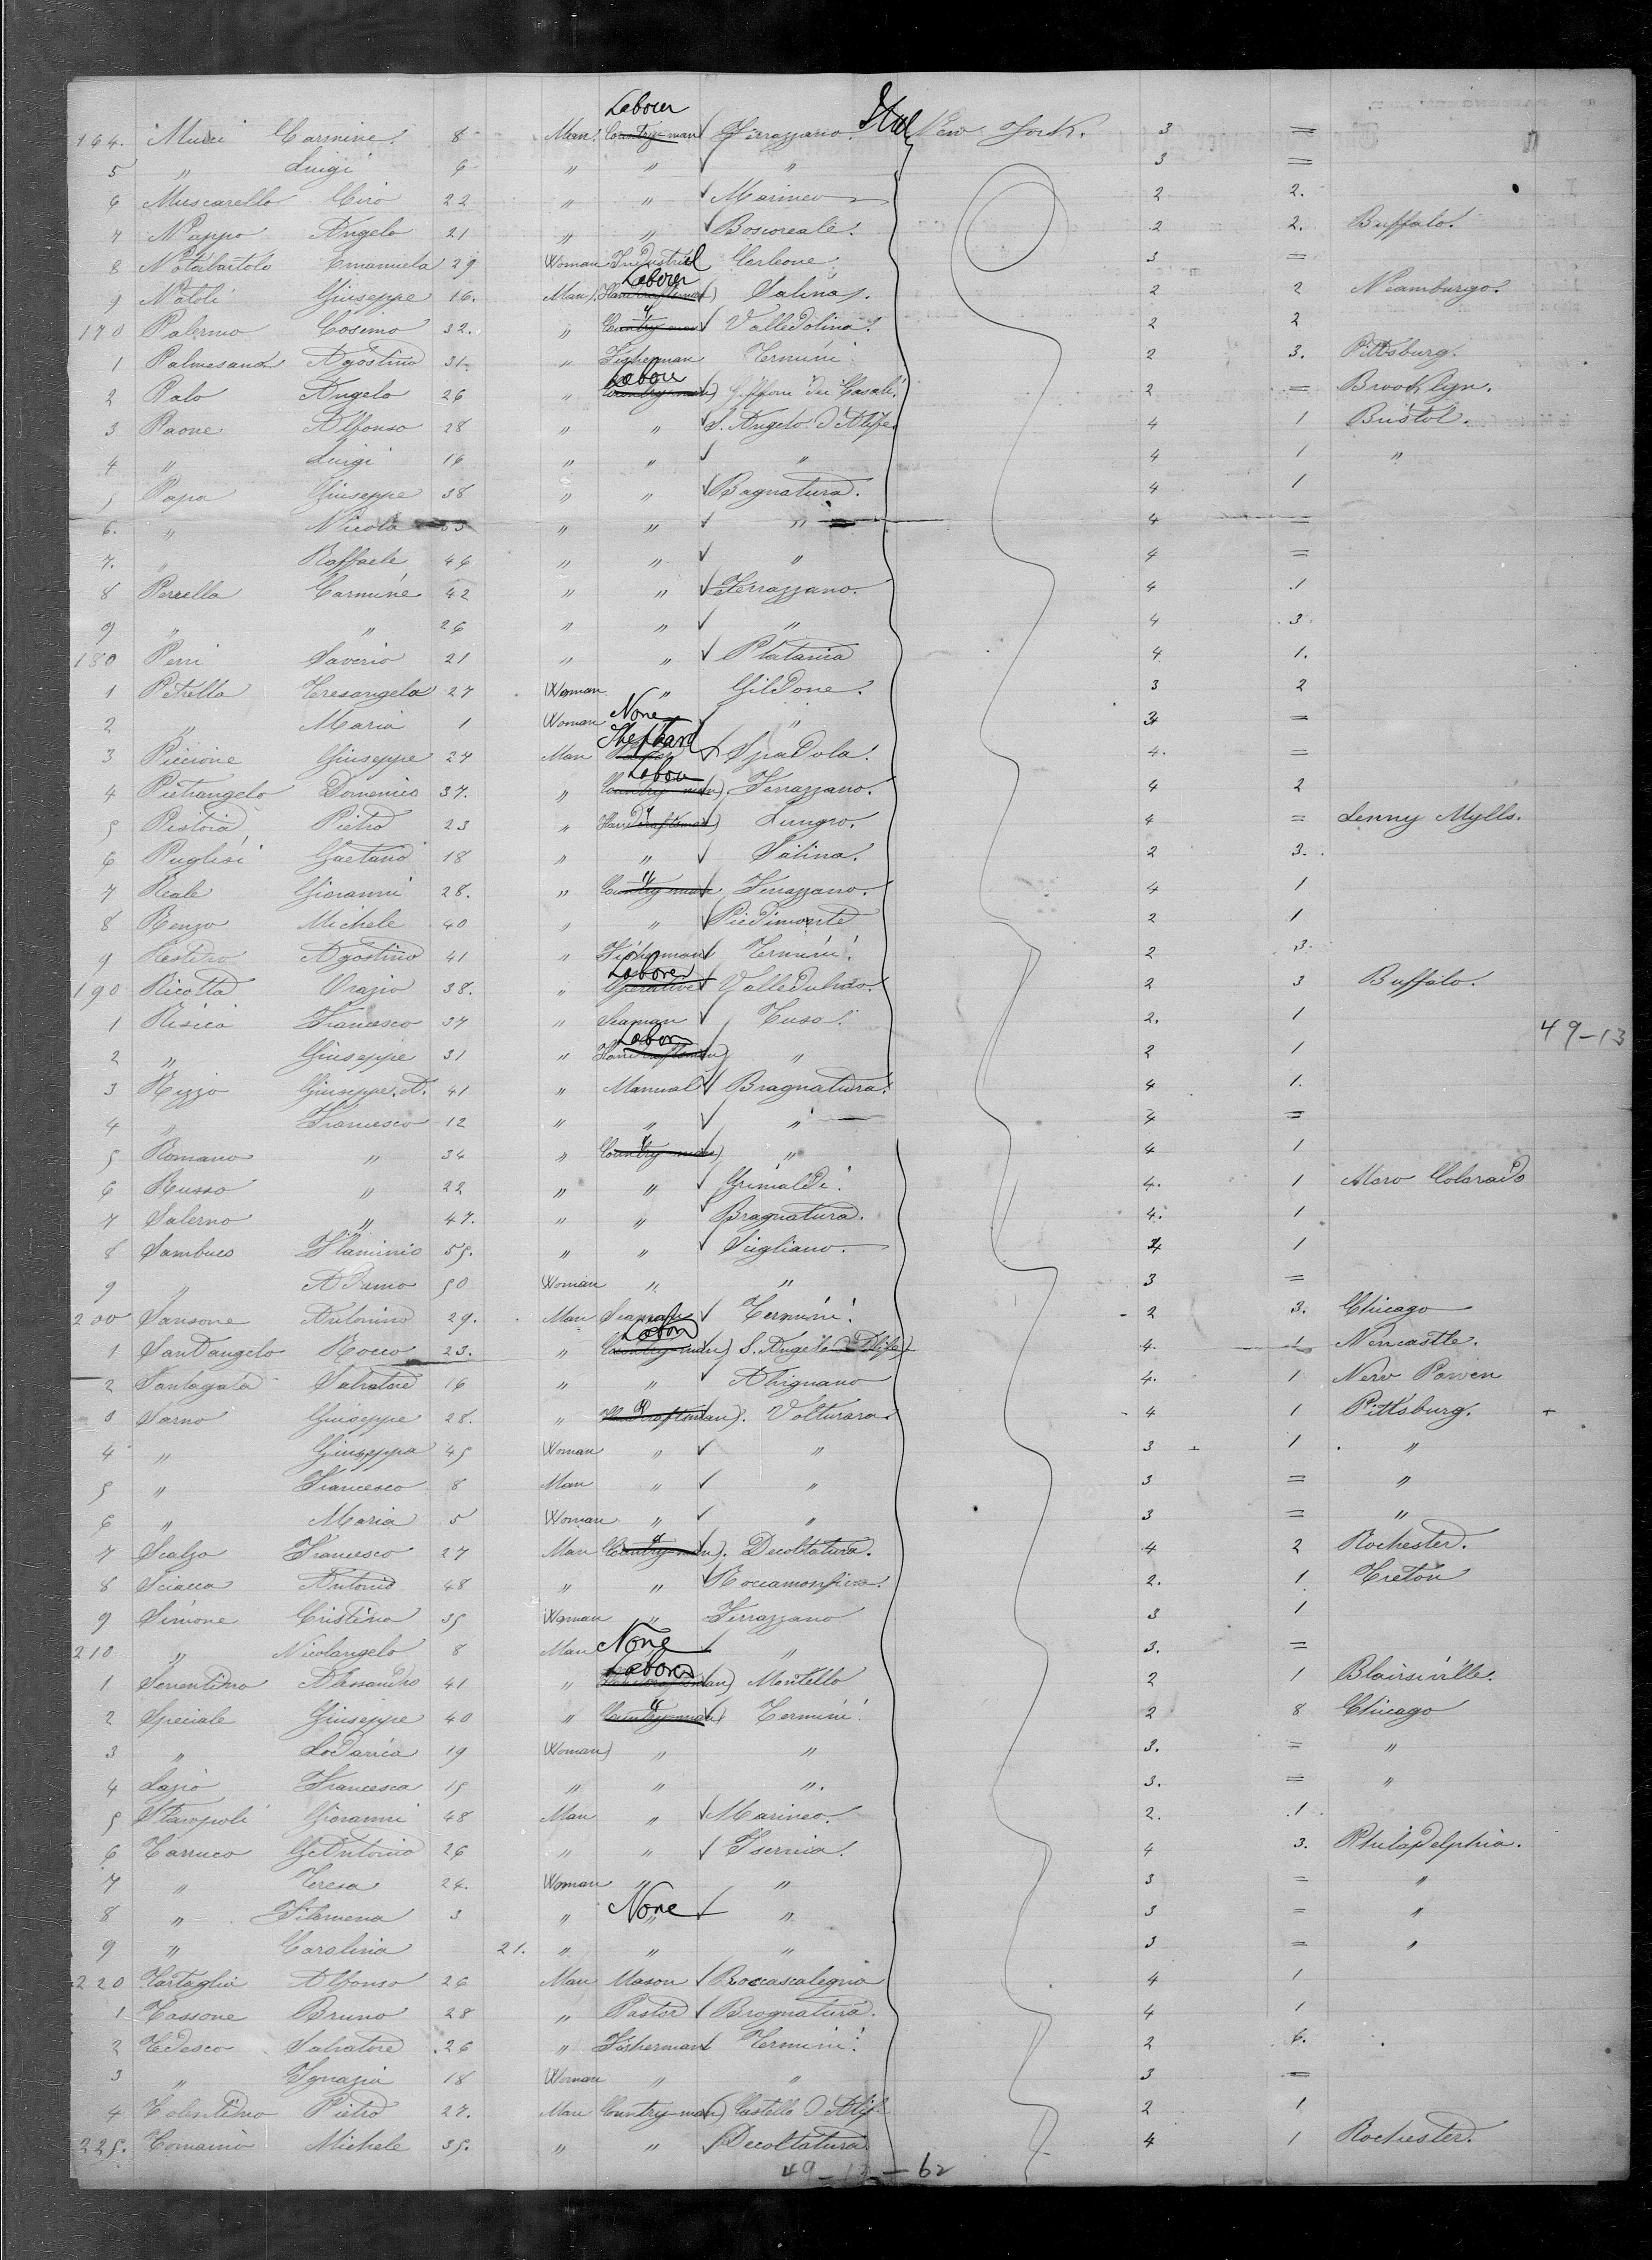 164. Mucci Carmine 8 Man Country man Laborer Ferrazzano Ital New York. 3 =
5 " Luigi 6 " " " 3 =
6 Muscarello Ciro 22 " " Marineo 2 2.
7 Nappo Angelo 21 " " Boscoreale. 2 2. Buffalo.
8 Notabartolo Emanuela 29 Woman Industrial 3 =
9 Natoli Giuseppe 16. Man Handcraftsman Laborer Salina. 2 2
170 Palermo Cosimo 32. " Country man " Valledolina. 2 2
1 Palmesano Agostino 31. " Fisherman Termini 2 3. Pittsburg.
2 Palo Angelo 26 " Country man Labour Casali. 2 = Brooklyn.
3 Paone Alfonso 28 " " S. Angelo d'Alife. 4 1 Bristol.
4 " Luigi 16 " " " 4 1 "
5 Papa Giuseppe 38 " " Bagnatura. 4 1
6. " Nicola " " " 4 =
7. " Raffaele 46 " " " 4 =
8 Perrella Carmine 42 " " Ferrazzano. 4 .1
9 " " 26 " " " 4 3.
180 Perri Saverio 21 " " Platania 4 1.
1 Petrella Teresangela 27 Woman " Gildone. 3 2
2 " Maria 1 Woman None " 3 =
3 Piccione Giuseppe 27 Man Shephard Spadola. 4. =
4 Pietrangelo Domenico 37. " Country man Labou Ferrazzano. 4 2
5 Pistoia Pietro 23 " Handcraftsman " Lungro. 4 = Lenny Mylls.
6 Puglisi Gaetano 18 " " Salina. 2 3.
7 Reale Giovanni 28. " Country man " Ferrazzano. 4 1
8 Renzo Michele 40 " " Piedimonte 2 1
9 Restivo Agostino 41 " Fisherman Termini. 2 3.
190 Ricotta Orazio 38. " Operative Laborer 2 3 Buffalo.
1 Risica Francesco 37 " Seaman Tusa. 2. 1
49-13
2 " Giuseppe 31 " Handcraftsman Labor " 2 1
3 Rizzo Giuseppe. A. 41 " Manual Bragnatura. 4 1.
4 " Francesco 12 " " " 4 =
5 Romano " 34 " Country man " " 4 1
6 Russo " 22 " " Grimaldi. 4. 1 Colorado
7 Salerno " 47. " " Bragnatura. 4. 1
8 Sambuco Flaminio 55. " " Scigliano. 4 1
9 " Adamo 50 Woman " " 3 =
200 Sansone Antonino 29. Man Seaman Termini. 2 3. Chicago
1 Santangelo Rocco 23. " Country man Labor S. Angelo d'Alife 4. 1 Newcastle.
2 Santagata Salvatore 16 " " 4. 1
3 Sarno Giuseppe 28. " Handcraftsman " Volturara 4 1 Pittsburg.
4 " Giuseppa 45 Woman " " 3 1 "
5 " Francesco 8 Man " " 3 = "
6 " Maria 5 Woman " " 3 = "
7 Scalzo Francesco 27 Man Country man " Decoltatura. 4 2 Rochester.
8 Sciacca Antonio 48 " " Roccamonfina. 2. 1 Treton
9 Simone Cristina 35 Woman " Ferrazzano 3 1
210 " Nicolangelo 8 Man None " 3. =
1 Serentino Alessandro 41 " Handcraftsman Labor Montello 2 1 Blairsinville.
2 Speciale Giuseppe 40 " Country man " Termini. 2 8 Chicago
3 " Lodarica 19 Woman " " 3. = "
4 Lazio Francesca 15 " " ". 3. = "
5 Staropoli Giovanni 48 Man " Marineo. 2. 1
6 Tarruco Gt Antonio 26 " " Isernia. 4 3. Philadelphia.
7 " Teresa 24. Woman " " 3 = "
8 " Filomena 3 " None " 3 = "
9 " Carolina 21. " " " 3 = "
220 Tartaglia Alfonso 26 Man Mason Roccascalegna 4 1
1 Tassone Bruno 28 " Pastor Brognatura. 4 1
2 Tedesco Salvatore 26 " Fisherman Termini. 2 6.
3 " Ignazia 18 Woman " " 3 =
4 Tolentino Pietro 27. Man Country man Castello d'Alife 2 1
225. Tomaino Michele 35. " " Decoltatura 4 1 Rochester.
49-13-62